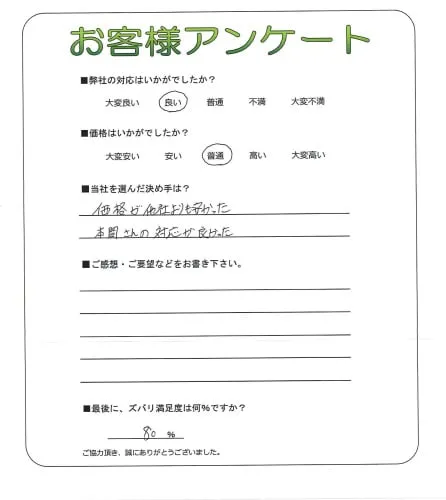 お客様アンケート
■弊社の対応はいかがでしたか?
大変良い 良い 普通 不満 大変不満
■価格はいかがでしたか?
大変安い 安い 普通 高い 大変高い
■当社を選んだ決め手は?
価格が他社よりも安かった
本間さんの対応が良かった
■ご感想・ご要望などをお書き下さい。
■最後に、ズバリ満足度は何%ですか?
80 %
ご協力頂き、誠にありがとうございました。